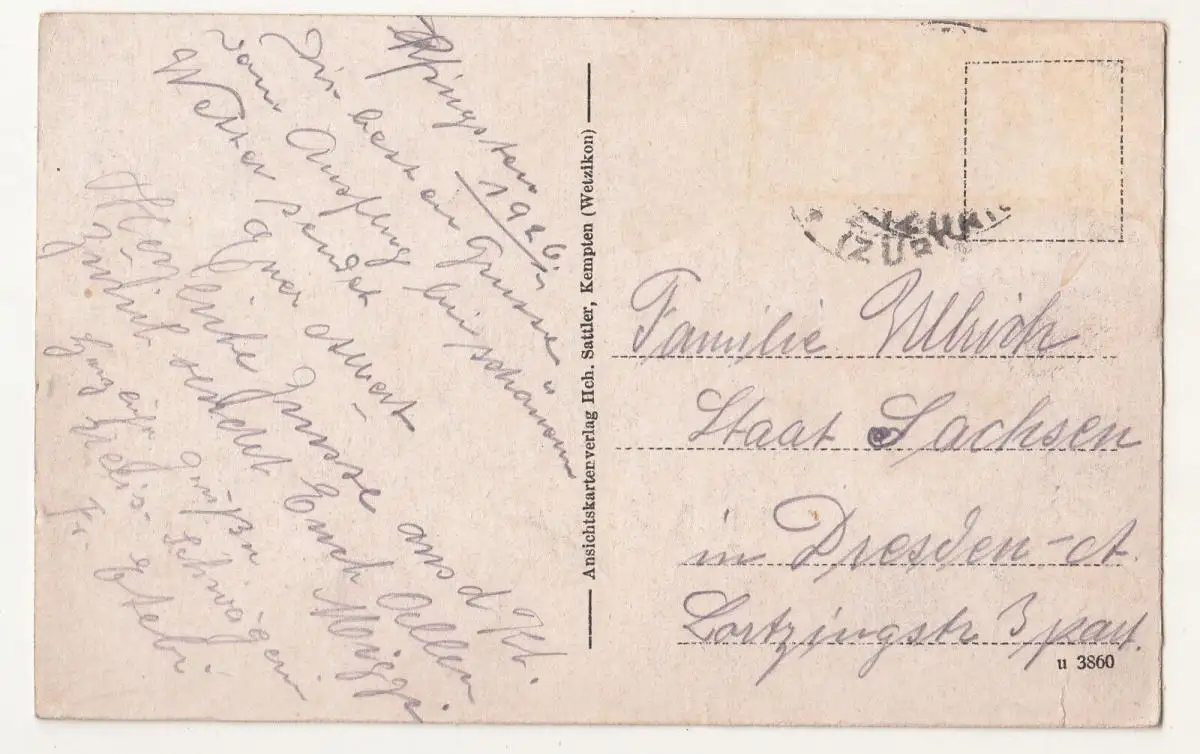 Pfingsten
1926.
Die besten Grüsse
vom Ausflug bei schönem
Wetter sendet
Euer
Herzliche Grüsse aus d. Kt.
Zürich sendet Euch Allen
Miggi.
Schwägerin
Ansichtskartenverlag Hch. Sattler, Kempten (Wetzikon)
ZÜRICH
Familie Ullrich
Staat Sachsen
in Dresden-A.
Lortzingstr 3 part.
u 3860